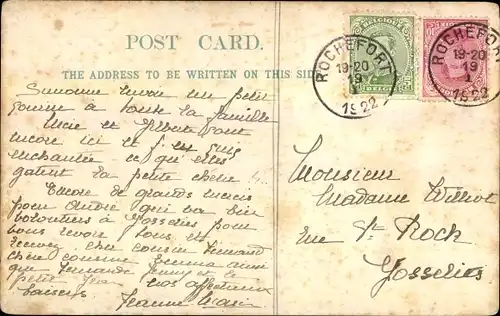 POST CARD.
THE ADDRESS TO BE WRITTEN ON THIS SIDE
BELGIQUE
BELGIË
ROCHEFORT
19-20
19
1
1922
ROCHEFORT
19-20
19
1
1922
un petit
à toute la famille
Lucie et Albert sont
encore ici et j'en suis
enchantée ce qu'elles
gâtent la petite chérie
Encore de grands mercis
pour André qui va bien
volontiers à Yosselies pour
vous revoir tous
Recevez cher cousin Fernand
chère cousine Emma ainsi
que Fernande et le
petit nos affectueux
baisers Jeanne Marie
Monsieur
Madame
rue St Roch
Yosselies